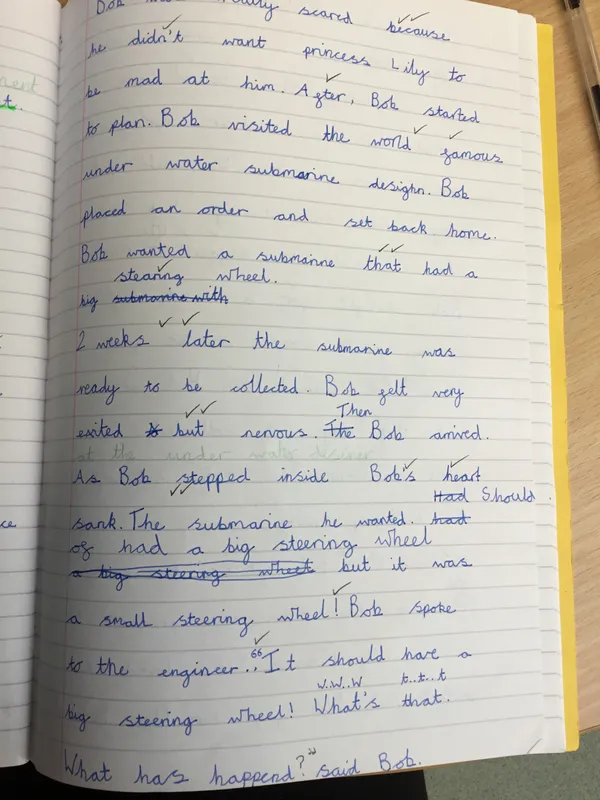 Bob was really scared because
he didn't want princess Lily to
be mad at him. After, Bob started
to plan. Bob visited the world famous
under water submarine desighn. Bob
placed an order and set back home.
Bob wanted a submarine that had a
stearing wheel.
big submarine with
2 weeks later the submarine was
ready to be collected. Bob felt very
exited but nervous. The Then Bob arrived.
at the under water desiner
As Bob stepped inside Bob's heart
Had Should.
sank. The submarine he wanted. had
of had a big steering wheel
a big steering wheel but it was
a small steering wheel! Bob spoke
to the engineer.. "It should have a
W..W..W t..t..t
big steering wheel! What's that.
What has happend?" said Bob.